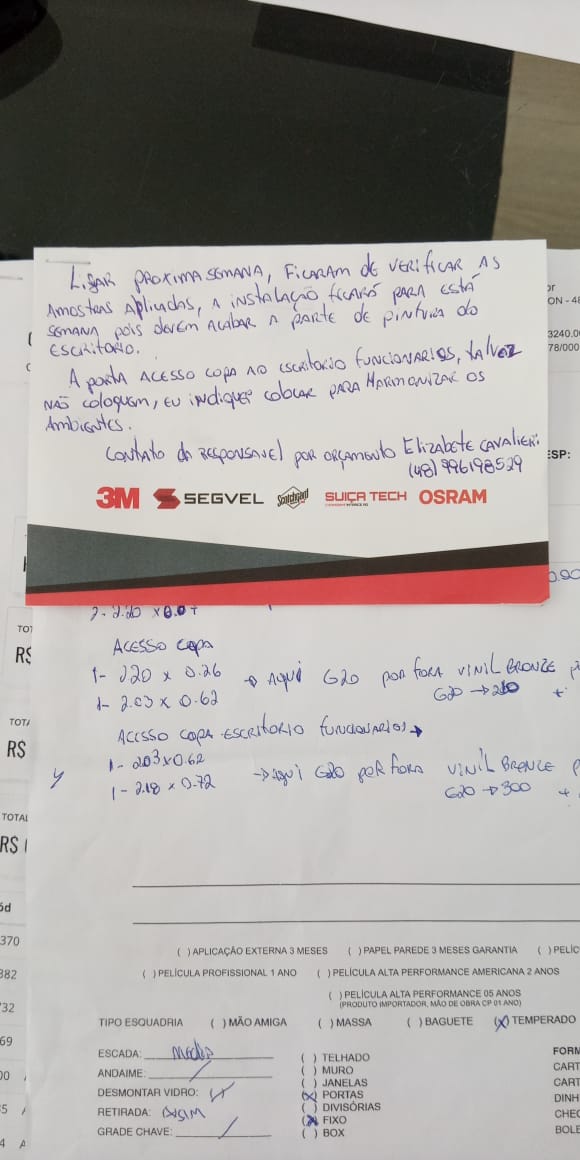 LigAR PROXIMA SEMANA, FICARAM de VERIFICAR AS
AMOSTRAS APLICADAS, A INSTALAÇÃO FICARÁ PARA ESTÁ
SEMANA pois devem ACABAR A PARTE de PINTURA do
ESCRITORIO.
A porta ACESSO COPA AO ESCRITORIO FUNCIONARIOS, TALVEZ
NÃO coloquem, EU INDIQUEI colocar PARA HARMONIZAR OS
AMBIENTES.
Contato do RESPONSAVEL por orçamento ELIZABETE CAVALIERI
(48) 996198529
3M SEGVEL Scotchgard SUIÇA TECH OSRAM
or
ON - 48
3240.0
78/000
ESP:
2- 2.20 x 0.07
ACESSO COPA
1- 220 x 0.26 → AQUI G20 POR FORA VINIL BRONZE P
1- 2.03 x 0.62 G20 → 210 +
ACESSO COPA ESCRITORIO FUNCIONARIOS →
1- 203 x 0.62
1- 2.18 x 0.72 → AQUI G20 POR FORA VINIL BRONZE P
G20 → 300 +
TOT
R$
TOTA
R$
TOTAL
R$
ód
370
382
732
69
00
5
4 A
( ) APLICAÇÃO EXTERNA 3 MESES ( ) PAPEL PAREDE 3 MESES GARANTIA ( ) PELÍC
( ) PELÍCULA PROFISSIONAL 1 ANO ( ) PELÍCULA ALTA PERFORMANCE AMERICANA 2 ANOS
( ) PELÍCULA ALTA PERFORMANCE 05 ANOS
(PRODUTO IMPORTADOR, MÃO DE OBRA CP 01 ANO)
TIPO ESQUADRIA ( ) MÃO AMIGA ( ) MASSA ( ) BAGUETE (X) TEMPERADO
ESCADA:
ANDAIME:
DESMONTAR VIDRO:
RETIRADA: (X) SIM
GRADE CHAVE:
( ) TELHADO
( ) MURO
( ) JANELAS
(X) PORTAS
( ) DIVISÓRIAS
(X) FIXO
( ) BOX
FORM
CART
CART
DINH
CHEC
BOLE